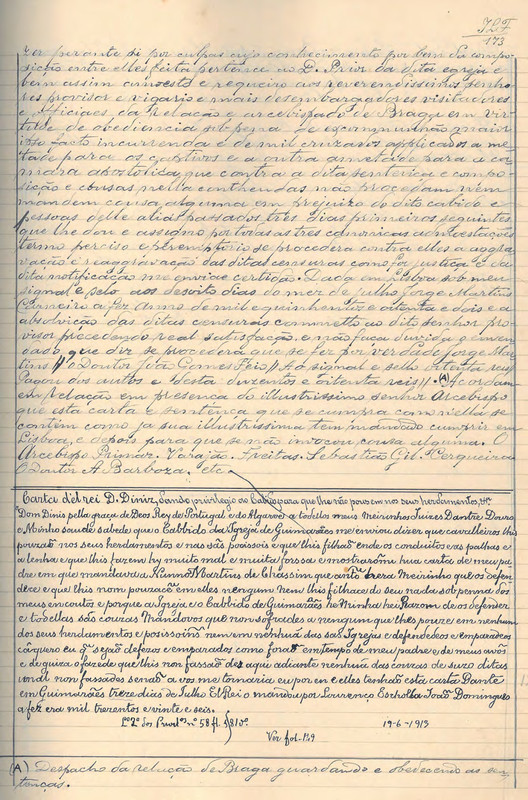 173
ser perante si por culpas cujo conhecimento por bem da compo-
sição entre elles feita pertença ao D. Prior da dita egreja e
bem assim amoesto e requeiro aos reverendissimos senho-
res provisor e vigario e mais desembargadores visitadores
e officiaes da relação e arcebispado de Braga em vir-
tude de obediencia sob pena de excommunhão maior
ipso facto incurrenda e de mil cruzados applicados a me-
tade para os captivos e a outra ametade para a ca-
mara apostolica, que contra a dita sentença e compo-
sição e cousas nella conthendas não procedam nem
mandem cousa alguma em prejuizo do dito cabido e
pessoas delle alias passados tres dias primeiros seguintes
que lhe dou e assigno por todas as tres canonicas admoestações
termo preciso e peremptorio se procederá contra elles a aggra-
vação e reaggravação das ditas censuras como for justiça e da
dita notificação me enviae certidão. Dada em Lisboa sob meu
signal e selo aos desoito dias do mez de julho Jorge Martins
Carneiro a fez anno de mil e quinhentos e oitenta e dois e a
absolvição das ditas censuras commetto ao dito senhor pro-
visor precedendo real satisfação, e não faça duvida o emen-
dado, que diz se procederá que se fez por verdade Jorge Mar-
tins // o Doutor João Gomes Feio // Ao signal e sello oitenta reis //
Pagou dos autos e desta duzentos e oitenta reis // (A) Acordam
em relação em presença do illustrissimo senhor Arcebispo
que esta carta e sentença que se cumpra como nella se
contêm como ja sua illustrissima tem mandado cumprir em
Lisboa, e depois para que se não innovou cousa alguma. O
Arcebispo Primaz. Varajão. Freitas. Sebastião Gil. Cerqueira
O Doutor A. Barboza, etc.
Carta d'elrei D. Diniz, dando privilegio ao Cabido para que lhe não pousem no seus herdamentos, etc
Dom Dinis pella graça de Deos Rey de Portugal e do Algarve a todolos meus Meirinhos Juizes Dantre Douro
e Minho saude sabede que o Cabbido da Igreja de Guimarães me enviou dizer que cavalleiros lhis
pousão nos seus herdamentos e nas sas poissois e que lhis filhão ende os conduitos e as palhas e
a lenha e que lhis fazem hy muito mal e muita forssa e mostrarõme hua carta de meu pa-
dre em que mandava a Nunno Martins de Chassim que então era Meirinho que os defen-
desse e que lhis nom pouzacem em elles nengum nem lhis filhace do seu nada sob penna dos
meus encoutos e porque a Igreja e o Cabbido de Guimarães he Minha hei Razom de os defender
e todallas sas couzas Mandovos que nom sofrades a nengum que lhes pouze em nenhum
dos seus herdamentos e poissoins nem em nenhuã das sas Igrejas e defendedeos e emparadeos
e à quero eu q serão defezos e emparados como forão em tempo de meu padre e de meus avós
e de guiza o fazede que lhis nom fassão des aqui adiante nenhuã das couzas de suzo ditas
unde nom fassades senão a vos me tornaria eu por en e elles tenhão esta carta Dante
em Guimarães treze dias de Julho ElRei o mandou por Lourenço Escholla João Domingues
a fez era mil trezentos e vinte e seis.
Lº 2º dos Privilºs nº 58 fl. 810º
19-6-1913
Ver fol. 129
(A) Despacho da relução de Braga guardando e obedecendo as sen-
tenças.